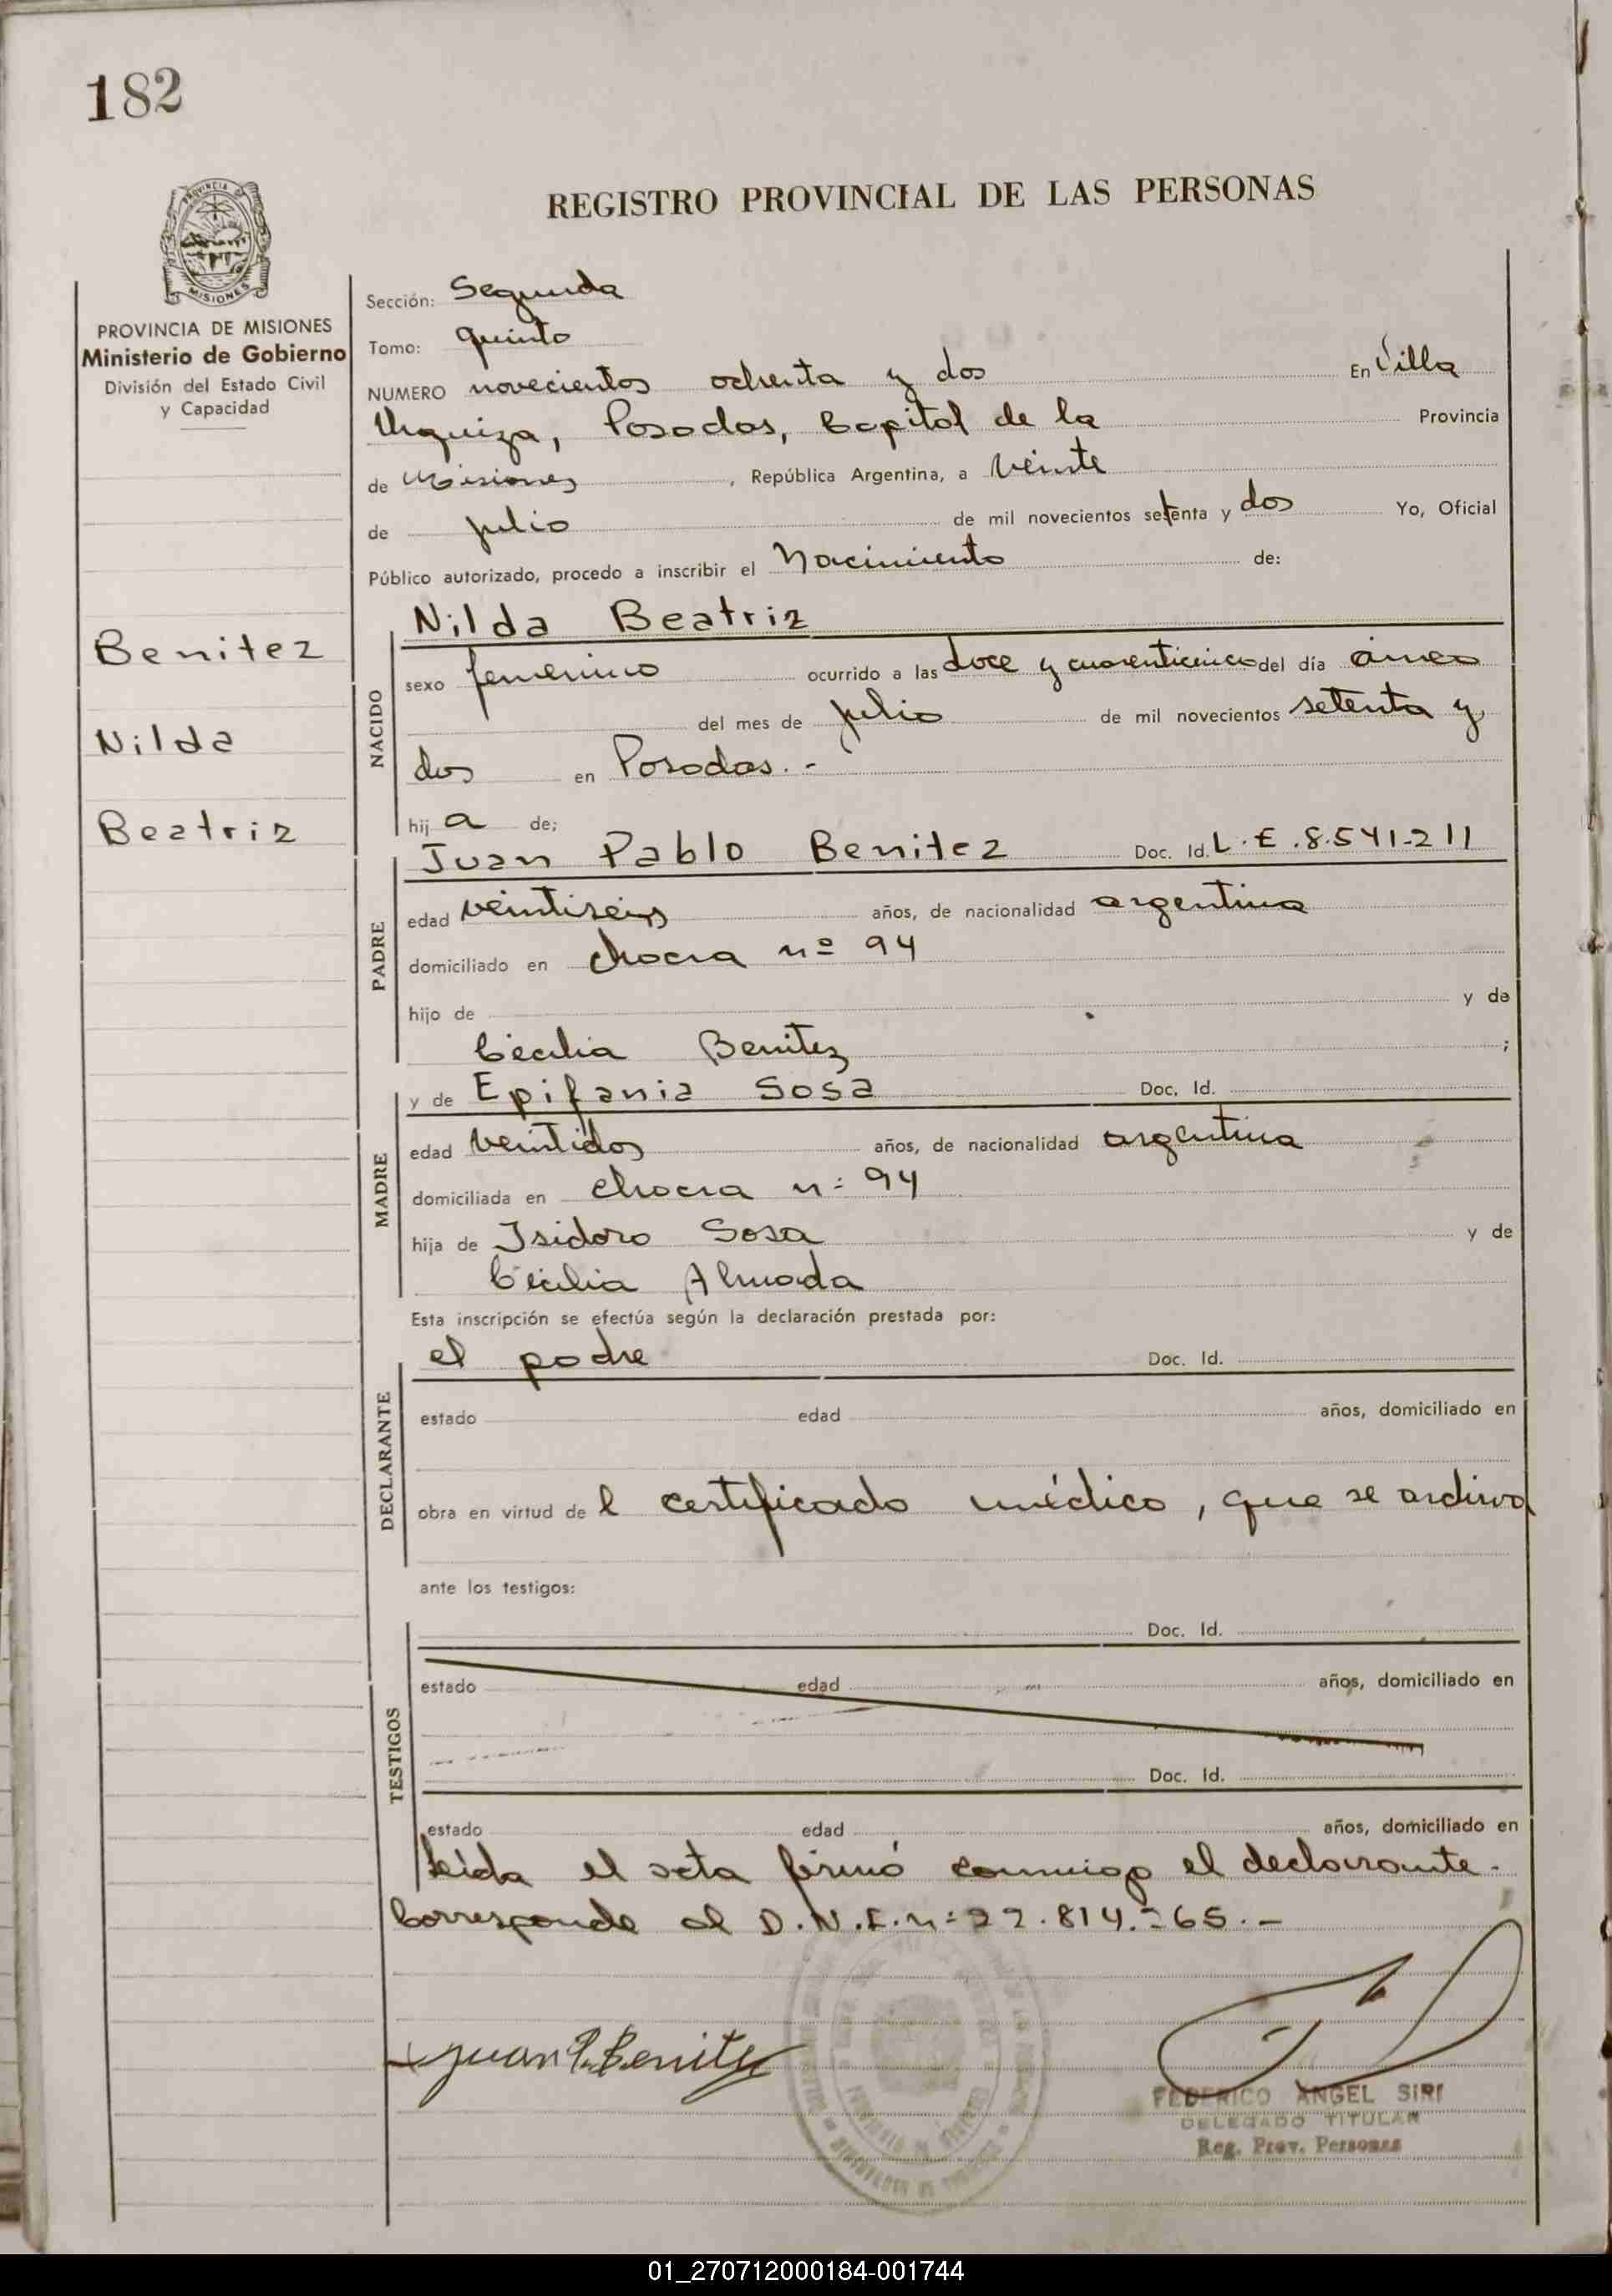 182
REGISTRO PROVINCIAL DE LAS PERSONAS
PROVINCIA DE
MISIONES
PROVINCIA DE MISIONES
Ministerio de Gobierno
División del Estado Civil
y Capacidad
Benitez
Nilda
Beatriz
Sección: Segunda
Tomo: quinto
NUMERO novecientos ochenta y dos En Villa
Urquiza, Posadas, Capital de la Provincia
de Misiones, República Argentina, a veinte
de julio de mil novecientos setenta y dos Yo, Oficial
Público autorizado, procedo a inscribir el Nacimiento de:
NACIDO
Nilda Beatriz
sexo femenino ocurrido a las doce y cuarenticinco del día cinco
del mes de julio de mil novecientos setenta y
dos en Posadas.-
hij a de;
PADRE
Juan Pablo Benitez Doc. Id. L.E.8.541.211
edad veintiseis años, de nacionalidad argentina
domiciliado en chacra nº 94
hijo de y de
Cecilia Benitez ;
MADRE
y de Epifania Sosa Doc. Id.
edad veintidos años, de nacionalidad argentina
domiciliada en chacra n: 94
hija de Isidoro Sosa y de
Cecilia Almada
Esta inscripción se efectúa según la declaración prestada por:
DECLARANTE
el padre Doc. Id.
estado edad años, domiciliado en
obra en virtud de l certificado médico, que se archiva
ante los testigos:
TESTIGOS
Doc. Id.
estado edad años, domiciliado en
Doc. Id.
estado edad años, domiciliado en
Leida el acta firmó conmigo el declarante.
Corresponde al D.N.I. n:
Juan P. Benitez
FEDERICO ANGEL SIRI
DELEGADO TITULAR
Reg. Prov. Personas
01_270712000184-001744